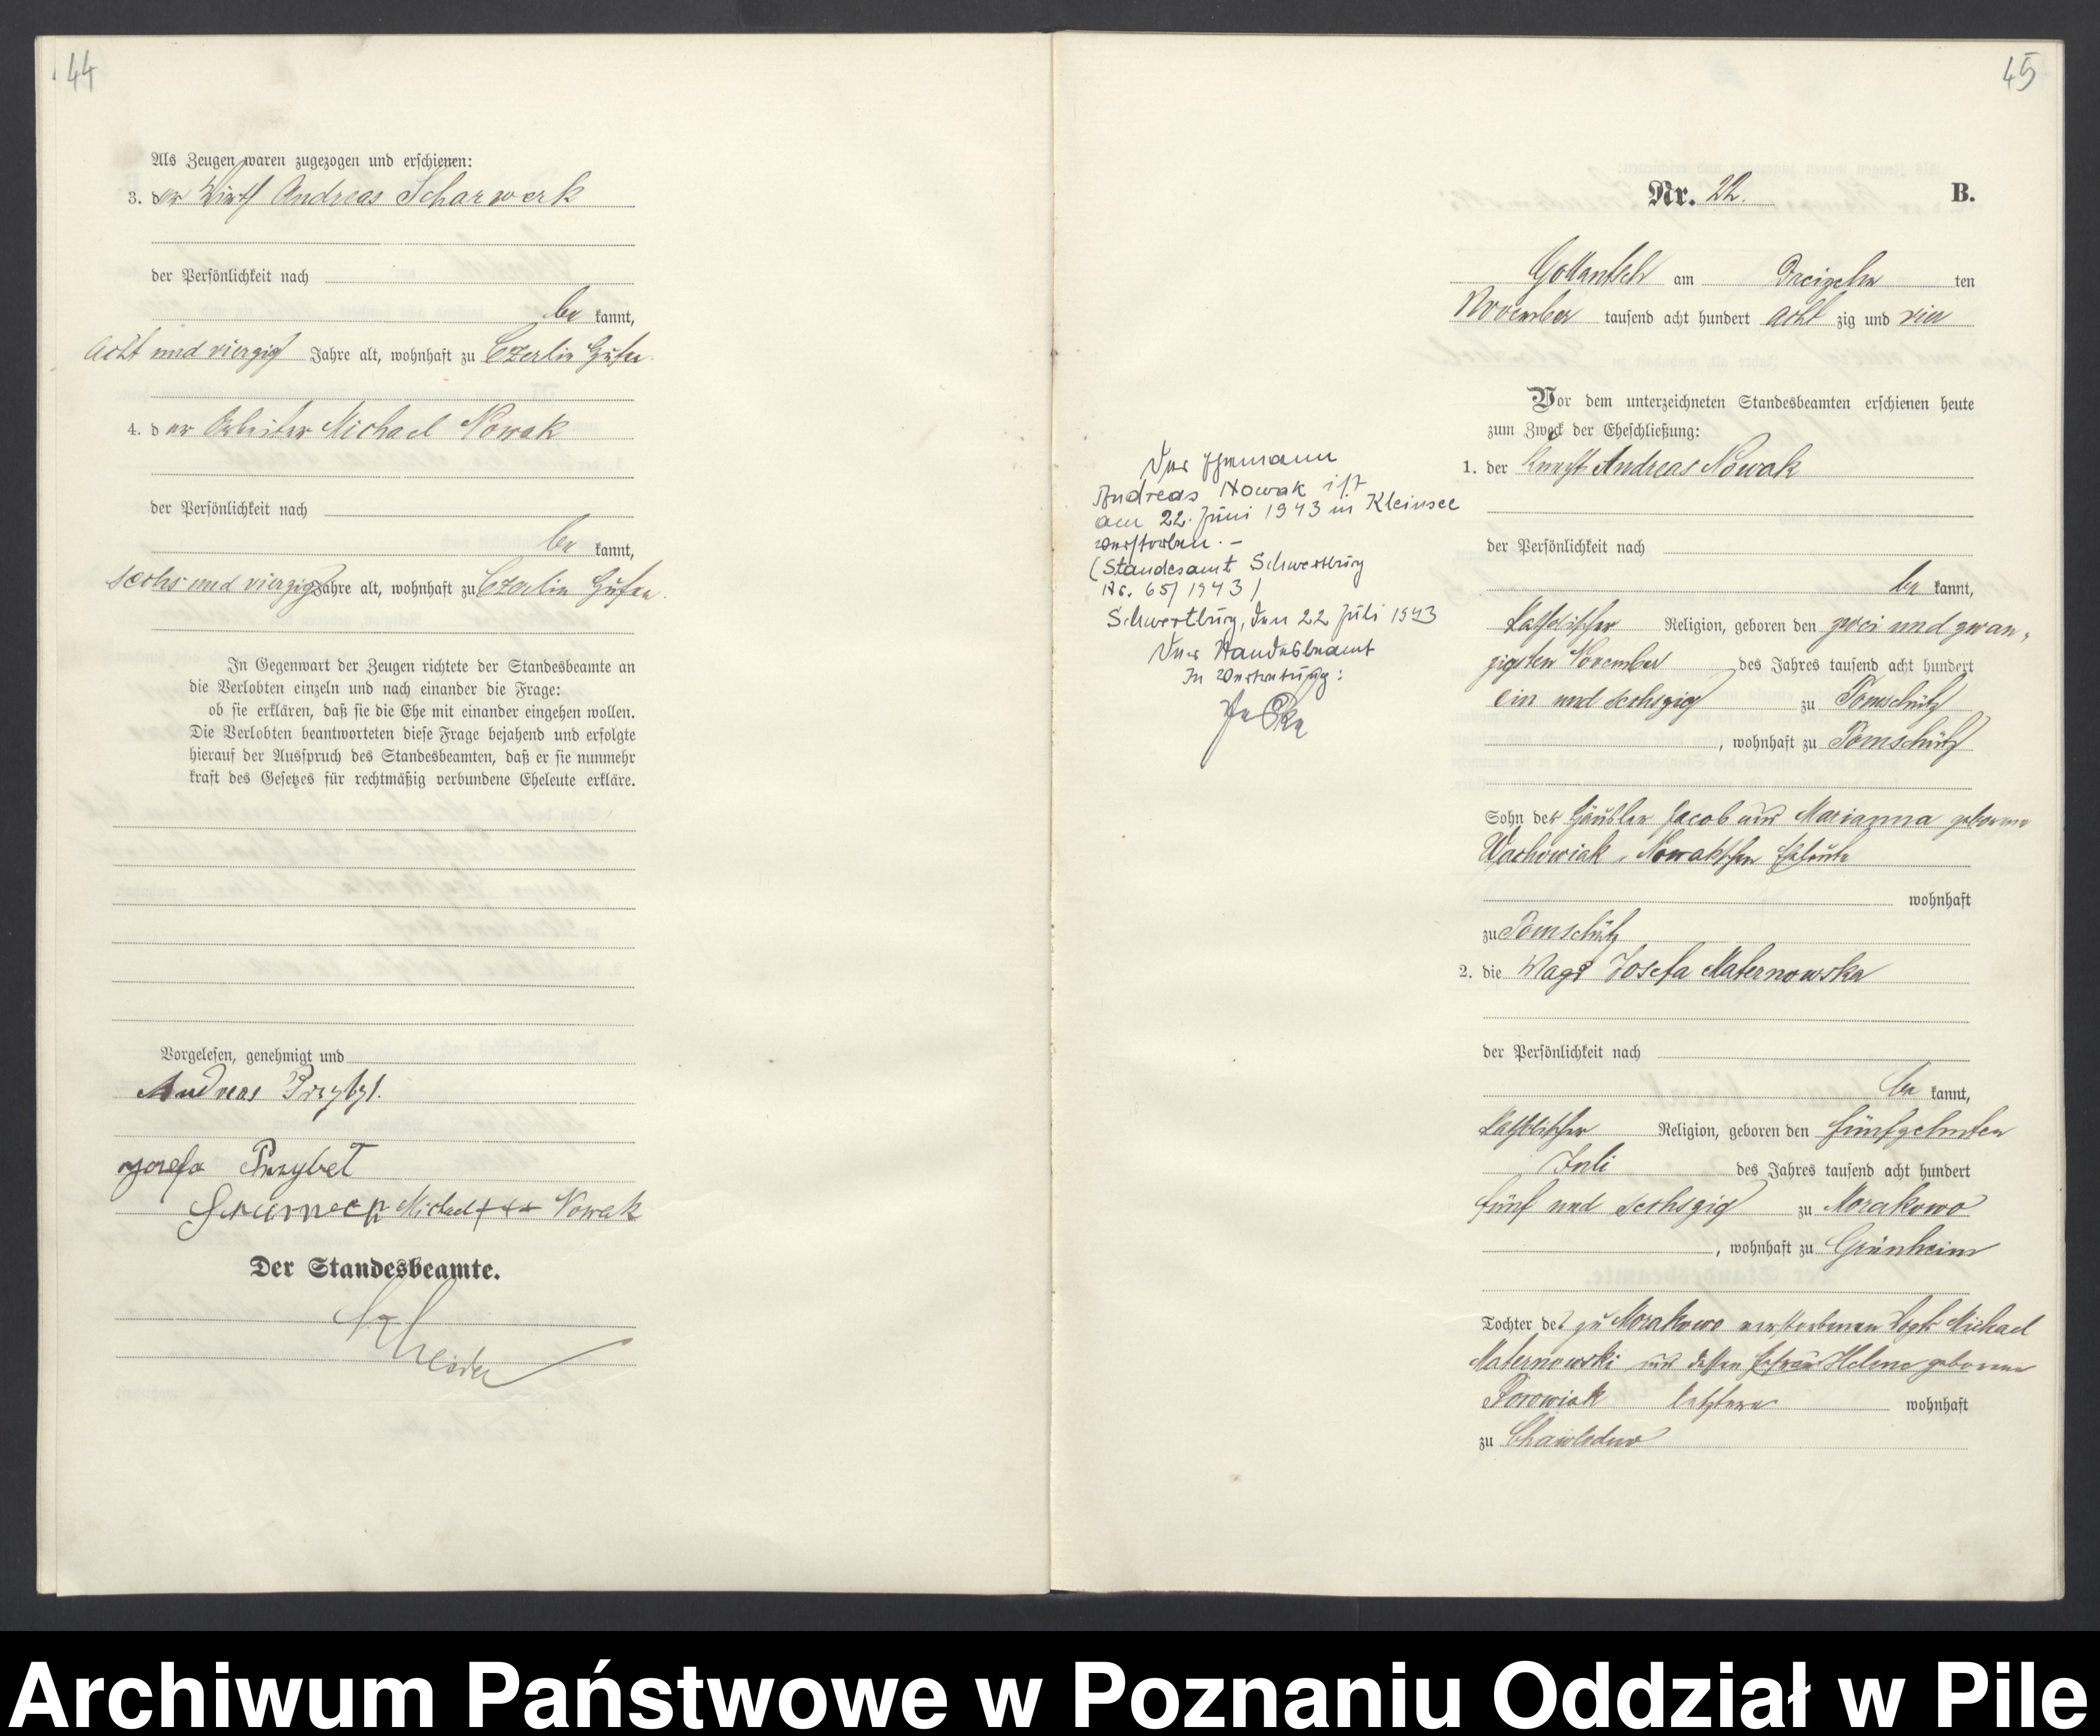 44
Als Zeugen waren zugezogen und erschienen:
3. der Wirth Andreas Scharwerk
der Persönlichkeit nach
be kannt,
acht und vierzig Jahre alt, wohnhaft zu Czerlin Gufen
4. der Arbeiter Michael Nowak
der Persönlichkeit nach
be kannt,
sechs und vierzig Jahre alt, wohnhaft zu Czerlin
In Gegenwart der Zeugen richtete der Standesbeamte an
die Verlobten einzeln und nach einander die Frage:
ob sie erklären, daß sie die Ehe mit einander eingehen wollen.
Die Verlobten beantworteten diese Frage bejahend und erfolgte
hierauf der Ausspruch des Standesbeamten, daß er sie nunmehr
kraft des Gesetzes für rechtmäßig verbundene Eheleute erkläre.
Vorgelesen, genehmigt und
Andreas Przybyl.
Josefa Przybeł
Michael +++ Nowak
Der Standesbeamte.
45
Nr. 22. B.
Gollantsch am Dreizehn ten
November tausend acht hundert acht zig und vier
Vor dem unterzeichneten Standesbeamten erschienen heute
zum Zweck der Eheschließung:
1. der Knecht Andreas Nowak
der Persönlichkeit nach
be kannt,
katholischer Religion, geboren den zwei und zwan-
zigsten November des Jahres tausend acht hundert
ein und sechszig zu Tomschütz
, wohnhaft zu Tomschütz
Sohn der Häusler Jacob und Marianna geborene
Wachowiak, Nowakschen Eheleute
wohnhaft
zu Tomschütz
2. die Magd Josefa Maternowska
der Persönlichkeit nach
be kannt,
katholischer Religion, geboren den fünfzehnten
Juli des Jahres tausend acht hundert
fünf und sechszig zu Morakowo
, wohnhaft zu Grünheim
Tochter des zu Morakowo verstorbenen Vogts Michael
Maternowski und dessen Ehefrau Helene geborene
Borowiak letztere wohnhaft
zu
Der Ehemann
Andreas Nowak ist
am 22. Juni 1943 in Kleinsee
verstorben. -
(Standesamt Schwertburg
Nr. 65/1943)
Schwertburg, den 22 Juli 1943
Der Standesbeamte
In Vertretung:
Archiwum Państwowe w Poznaniu Oddział w Pile